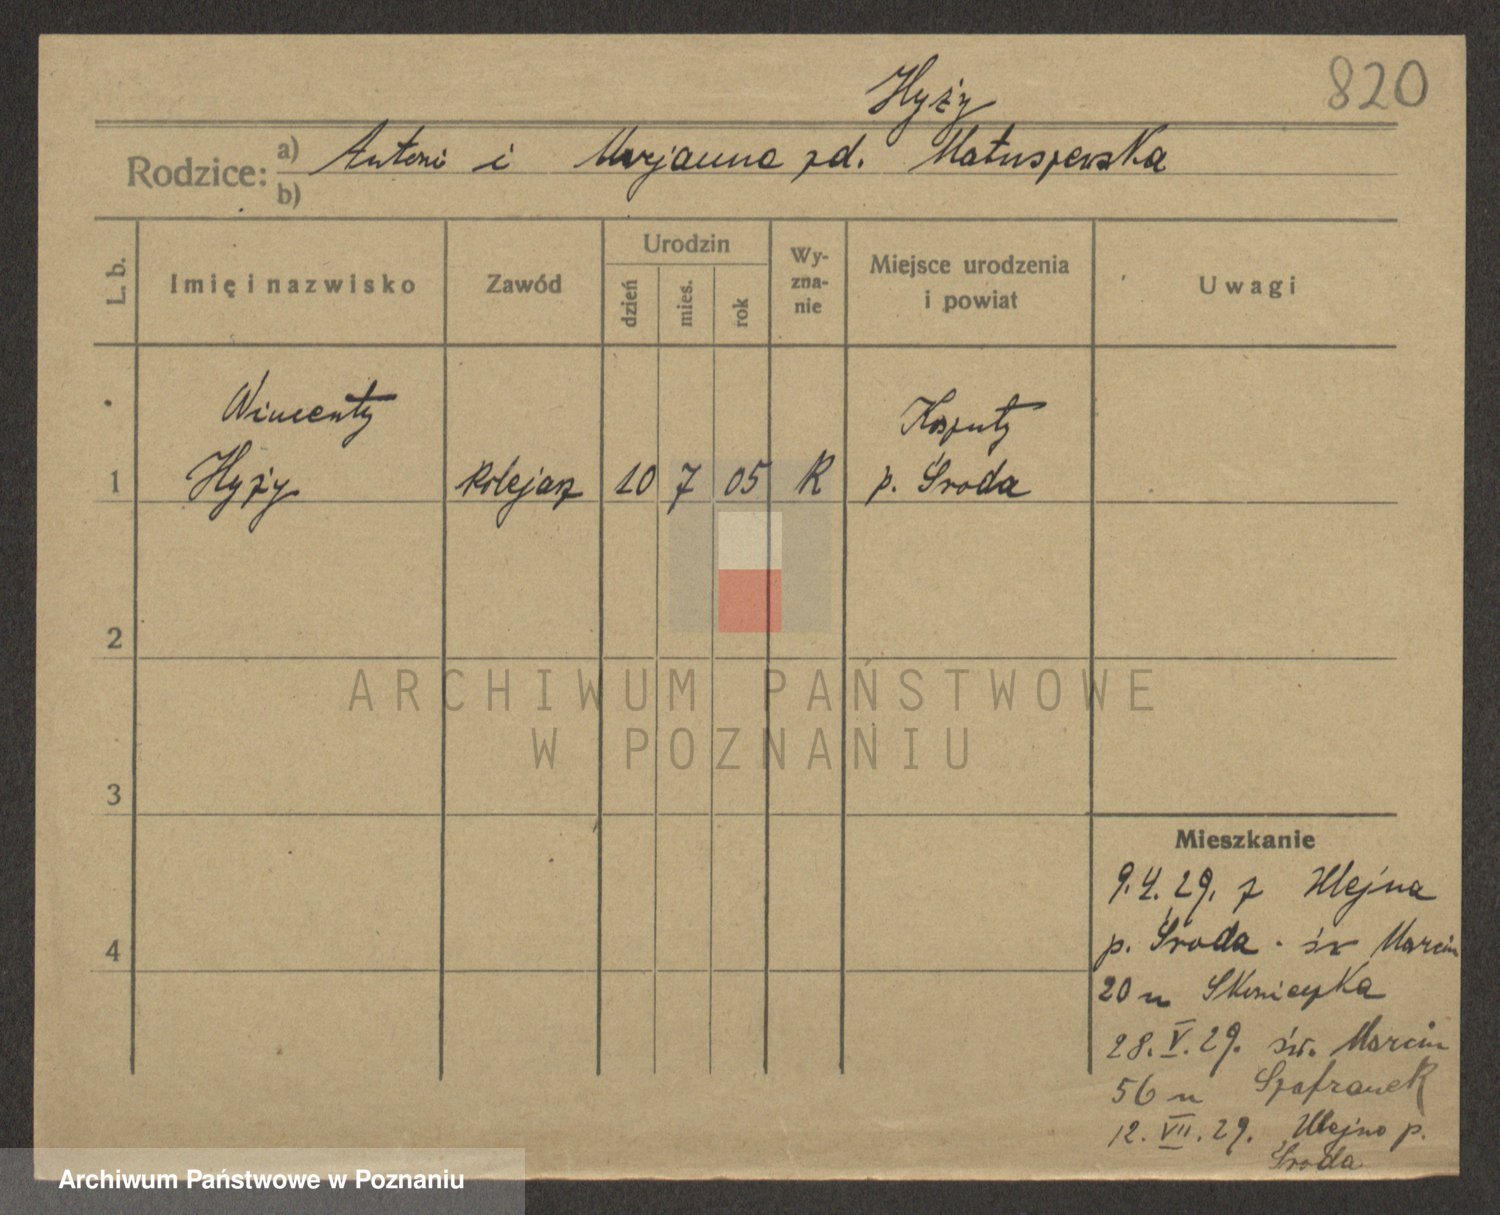 820
Hyży
Rodzice: a) Antoni i Marjanna zd. Matuszewska
b)
L. b.
Imię i nazwisko
Zawód
Urodzin
dzień
mies.
rok
Wy-
zna-
nie
Miejsce urodzenia
i powiat
Uwagi
Wincenty
Koszuty
1 Hyży kolejarz 10 7 05 R p. Środa
2
ARCHIWUM PAŃSTWOWE
W POZNANIU
3
4
Mieszkanie
9.4.29. z Ulejna
p. Środa. św Marcin
20 u Skoniczka
28.V.29. św. Marcin
56 u Szafranek
12.VII.29. Ulejno p.
Środa
Archiwum Państwowe w Poznaniu